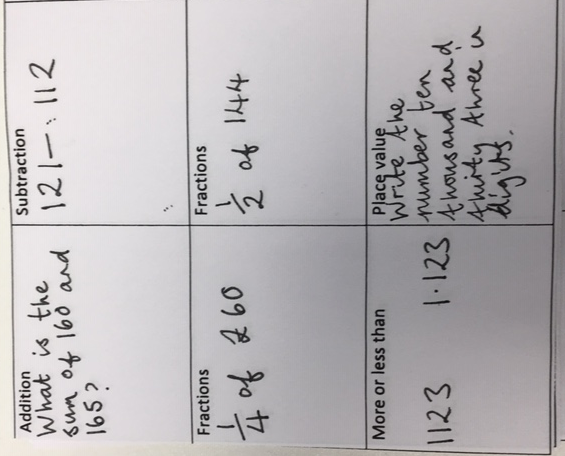 Addition
What is the
sum of 160 and
165?
Subtraction
121 – 112
Fractions
1/4 of 260
Fractions
1/2 of 144
More or less than
1123 1.123
Place value
Write the
number ten
thousand and
thirty three in
digits.